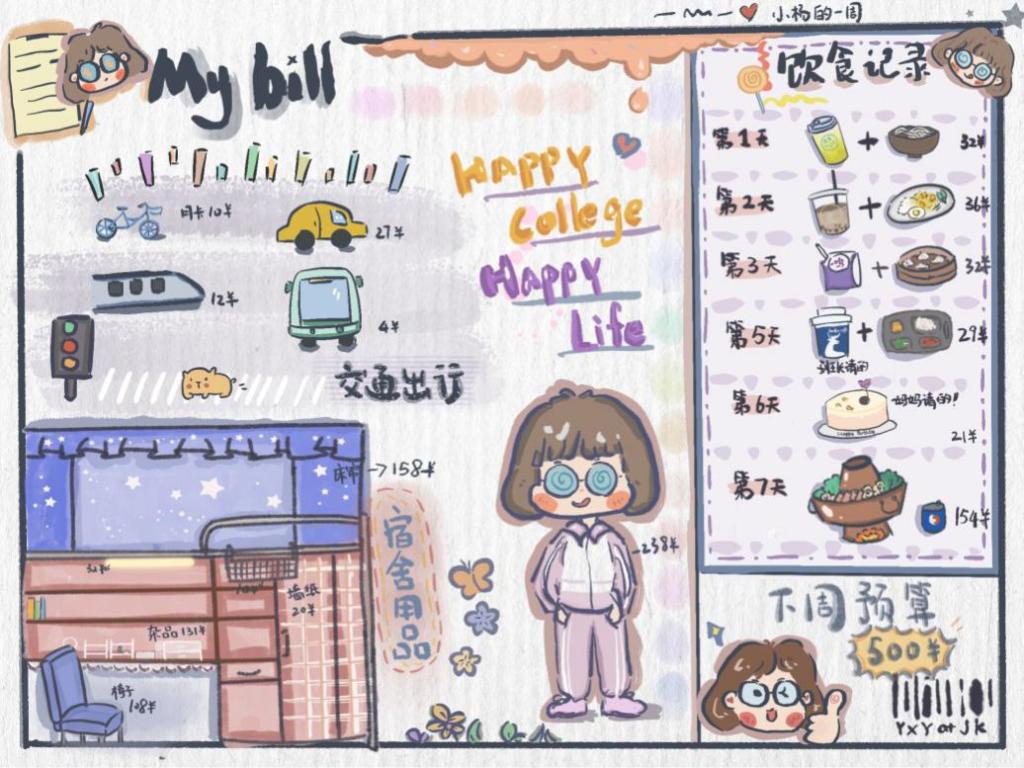 小杨的一周
My bill
月卡10¥
27¥
12¥
4¥
交通出行
HAPPY
College
HAPPY
Life
床帘→158¥
32¥
墙纸
20¥
杂品131¥
椅子
108¥
宿舍用品
238¥
饮食记录
第1天 + 32¥
第2天 + 36¥
第3天 + 32¥
第5天 + 29¥
班长请的
第6天
妈妈请的!
Happy Birthday
21¥
第7天
154¥
下周预算
500¥
YxY or Jk